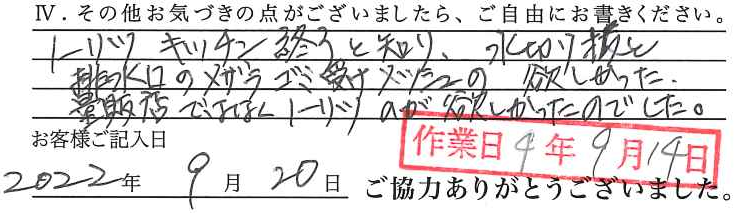 Ⅳ．その他お気づきの点がございましたら、ご自由にお書きください。
トーリツ キッチン 終了と知り、水切り棚と
排水口のメザラ ゴミ受け メッシュの 欲しかった.
量販店ではなく トーリツ のが 欲しかったのでした。
お客様ご記入日
作業日 4年 9月14日
2022年 9月 20日 ご協力ありがとうございました。